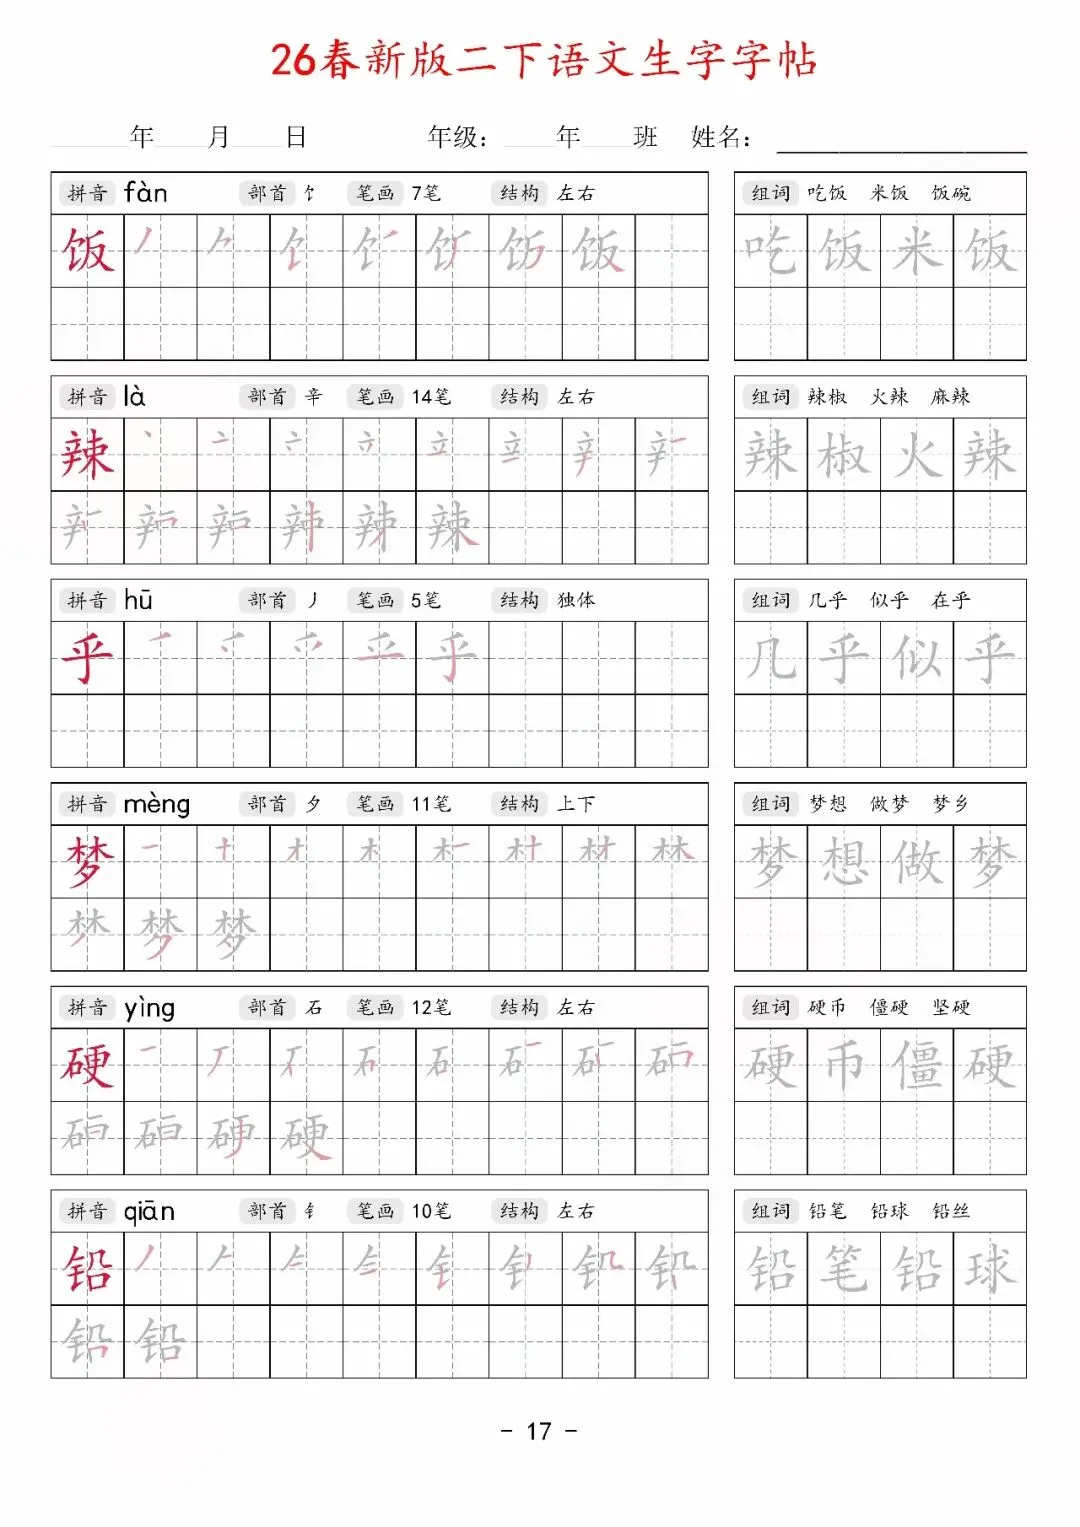 26春新版二下语文生字字帖
年 月 日 年级： 年 班 姓名：
拼音 fàn 部首 饣 笔画 7笔 结构 左右
组词 吃饭 米饭 饭碗
饭
吃饭米饭
拼音 là 部首 辛 笔画 14笔 结构 左右
组词 辣椒 火辣 麻辣
辣
辣椒火辣
拼音 hū 部首 丿 笔画 5笔 结构 独体
组词 几乎 似乎 在乎
乎
几乎似乎
拼音 mèng 部首 夕 笔画 11笔 结构 上下
组词 梦想 做梦 梦乡
梦
梦想做梦
拼音 yìng 部首 石 笔画 12笔 结构 左右
组词 硬币 僵硬 坚硬
硬
硬币僵硬
拼音 qiān 部首 钅 笔画 10笔 结构 左右
组词 铅笔 铅球 铅丝
铅
铅笔铅球
- 17 -